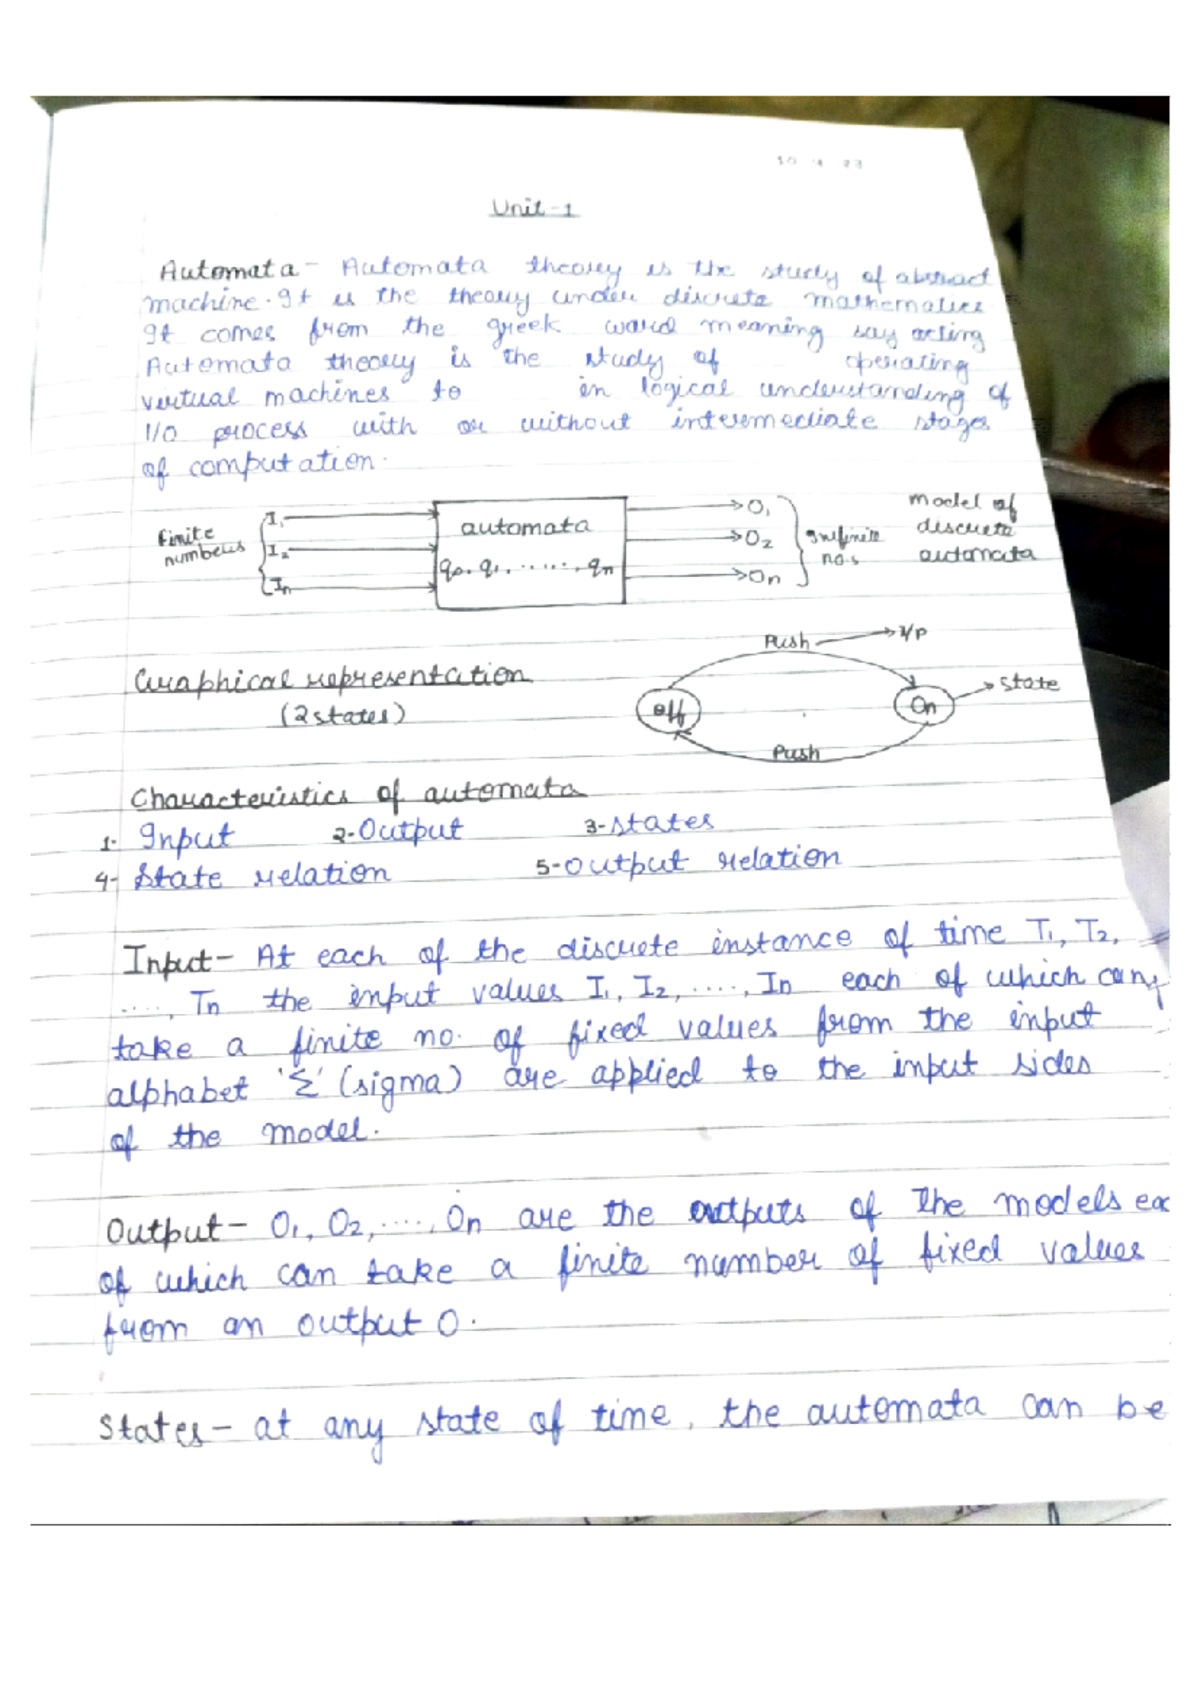 Unit-1
Automata - Automata theory is the study of abstract
machine. It is the theory under discrete mathematics
It comes from the greek word meaning say acting
Automata theory is the study of operating
virtual machines to in logical understanding of
I/O process with or without intermediate stages
of computation.
finite numbers
I₁
I₂
In
automata
q₀, q₁, ......, qn
O₁
O₂
On
Infinite no.s
model of
discrete
automata
Push → I/P
Graphical representation
(2 states)
off
On
→ state
Push
Characteristics of automata
1- Input 2- Output 3- states
4- State relation 5- output relation
Input - At each of the discrete instance of time T₁, T₂,
...., Tn the input values I₁, I₂, ...., In each of which can
take a finite no. of fixed values from the input
alphabet 'Σ' (sigma) are applied to the input sides
of the model.
Output - O₁, O₂, ...., On are the outputs of The models ea
of which can take a finite number of fixed values
from an output O.
States - at any state of time, the automata can be